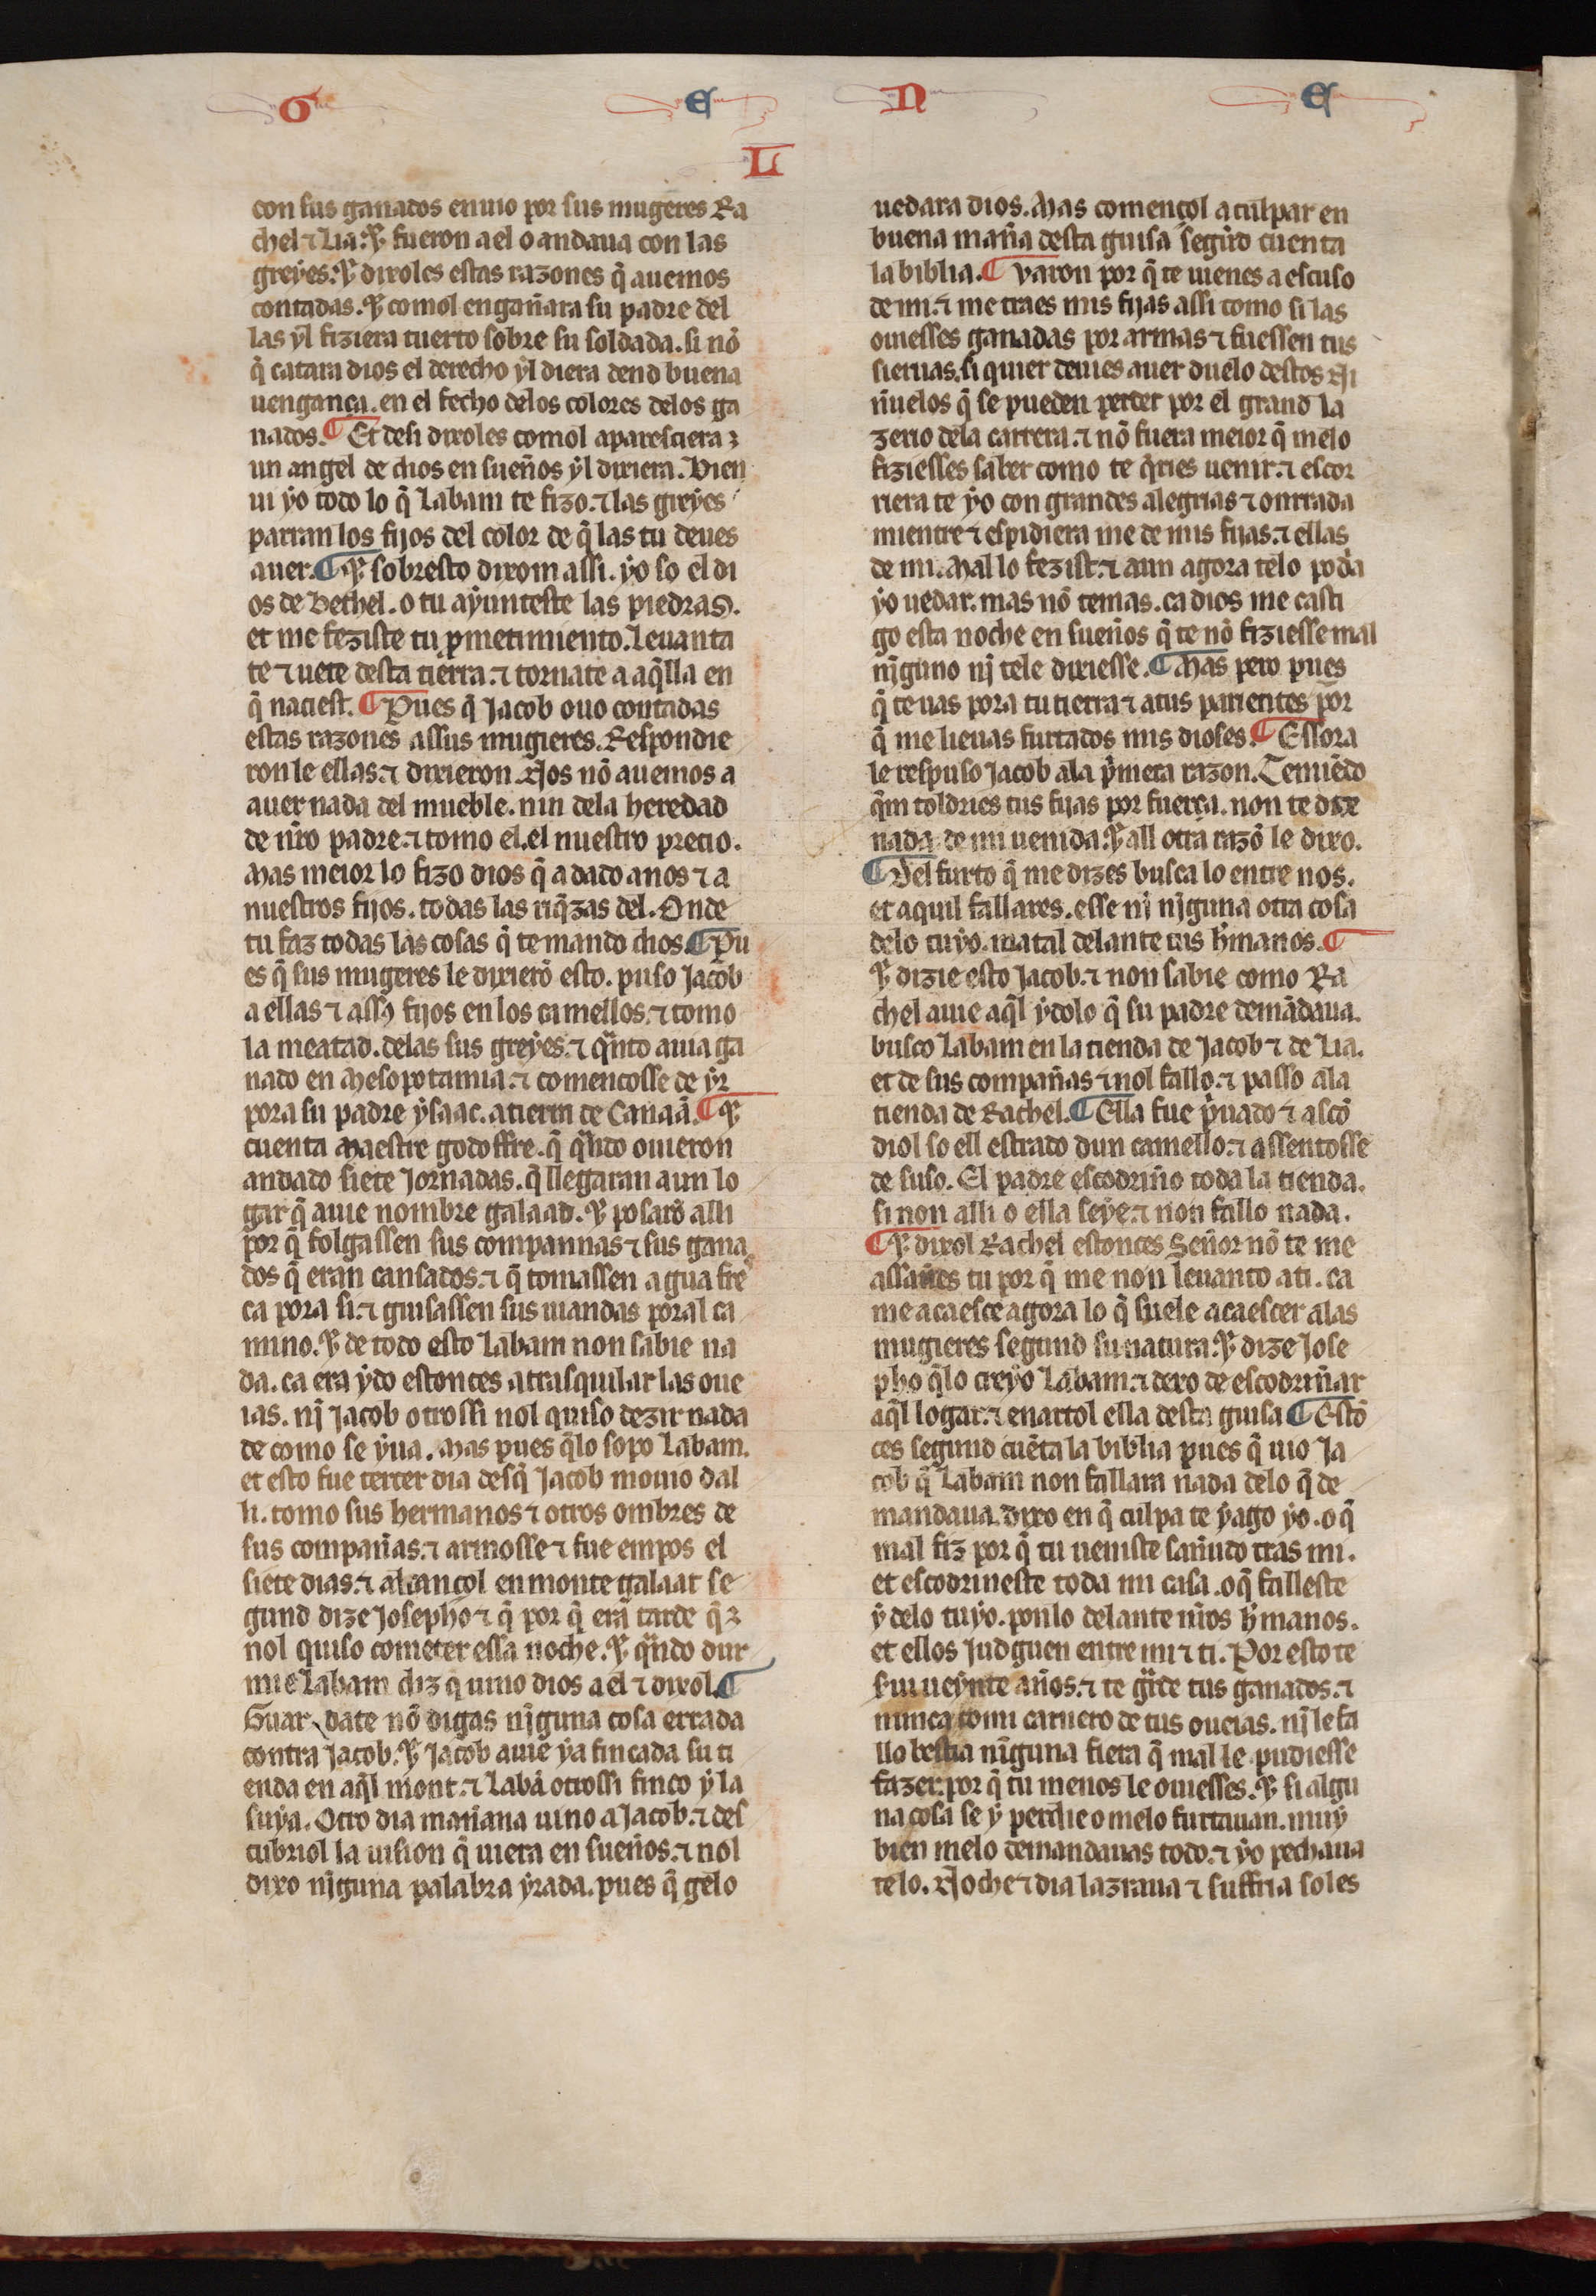 G E N E
LI
con sus ganados enuio por sus mugeres Ra
chel ⁊ Lia. Et fueron a el o andaua con las
greyes. Et dixoles estas razones q̃ auemos
contadas. Et comol engañara su padre del
las yl fiziera tuerto sobre su soldada. si nõ
q̃ catara dios el derecho yl diera dend buena
uengança. en el fecho delos colores delos ga
nados. ¶ Et desi dixoles comol aparesciera
un angel de dios en sueños yl dixiera. Bien
ui yo todo lo q̃ Labam te fizo. ⁊ las greyes
parran los fijos del color de q̃ las tu deues
auer. ¶ Et sobresto dixom assi. yo so el di
os de Bethel. o tu ayunteste las piedras.
et me feziste tu p̃metimiento. Leuanta
te ⁊ uete desta tierra. ⁊ tornate a aq̃lla en
q̃ naciest. ¶ Pues q̃ Jacob ouo contadas
estas razones assus mugieres. Respondie
ron le ellas. ⁊ dixieron. Nos nõ auemos a
auer nada del mueble. nin dela heredad
de nr̃o padre. ⁊ tomo el. el nuestro precio.
Mas meior lo fizo dios q̃ a dado anos ⁊ a
nuestros fijos. todas las riq̃zas del. Onde
tu faz todas las cosas q̃ te mando dios. ¶ Pu
es q̃ sus mugeres le dixierõ esto. puso Jacob
a ellas ⁊ assꝯ fijos en los camellos. ⁊ tomo
la meatad. delas sus greyes. ⁊ q̃nto auia ga
nado en Mesopotamia. ⁊ començosse de yr
pora su padre ysaac. a tierra de Canaã. ¶ Et
cuenta Maestre godoffre. q̃ q̃ndo ouieron
andado siete Jornadas. q̃ llegaran aun lo
gar q̃ auie nombre galaad. Et posarõ alli
por q̃ folgassen sus compannas ⁊ sus gana
dos q̃ eran cansados. ⁊ q̃ tomassen agua fres
ca pora si. ⁊ guisassen sus uiandas poral ca
mino. Et de todo esto Labam non sabie na
da. ca era ydo estonces a trasquilar las oue
ias. nj̃ Jacob otrossi nol quiso dezir nada
de como se yua. Mas pues q̃lo sopo Labam.
et esto fue tercer dia desq̃ Jacob mouio dal
li. tomo sus hermanos ⁊ otros ombres de
sus compañas. ⁊ armosse ⁊ fue empos el
siete dias. ⁊ alcançol en monte galaat se
gund dize Josepho ⁊ q̃ por q̃ era tarde q̃
nol quiso cometer essa noche. Et q̃ndo dur
mie Labam diz q̃ uino dios a el ⁊ dixol. ¶
Guar date nõ digas nj̃guna cosa errada
contra Jacob. Et Jacob auie ya fincada su ti
enda en aq̃l mont. ⁊ Labã otrossi finco y la
suya. Otro dia mañana uino a Jacob. ⁊ des
cubriol la uision q̃ uiera en sueños. ⁊ nol
dixo nj̃guna palabra yrada. pues q̃ gelo
uedara dios. Mas començol a culpar en
buena maña desta guisa segũd cuenta
la biblia. ¶ Varon por q̃ te uienes a escuso
de mi. ⁊ me traes mis fijas assi como si las
ouiesses ganadas por armas ⁊ fuessen tus
sieruas. si quier deuies auer duelo destos Ni
ñuelos q̃ se pueden perder por el grand la
zerio dela carrera. ⁊ nõ fuera meior q̃ melo
fiziesses saber como te q̃ries uenir. ⁊ escor
riera te yo con grandes alegrias ⁊ onrrada
mientre ⁊ espidiera me de mis fijas. ⁊ ellas
de mi. Mal lo fezist. ⁊ aun agora telo podria
yo uedar. mas nõ temas. ca dios me casti
go esta noche en sueños q̃ te nõ fiziesse mal
nj̃guno nj̃ tele dixiesse. ¶ Mas pero pues
q̃ te uas pora tu tierra ⁊ atus parientes por
q̃ me lieuas furtados mis dioses. ¶ Essora
le respuso Jacob ala p̃mera razon. Temiẽdo
q̃m toldries tus fijas por fuerça. non te dixe
nada de mi uenida. Et all otra razõ le dixo.
¶ Del furto q̃ me dizes busca lo entre nos.
et aquil fallares. esse nj̃ nj̃guna otra cosa
delo tuyo. matal delante tus h̃manos. ¶
Et dizie esto Jacob. ⁊ non sabie como Ra
chel auie aq̃l ydolo q̃ su padre demãdaua.
busco Labam en la tienda de Jacob ⁊ de Lia.
et de sus compañas ⁊ nol fallo. ⁊ passo ala
tienda de Rachel. ¶ Ella fue p̃uado ⁊ ascõ
diol so ell estrado dun camello. ⁊ assentosse
de suso. El padre escodriño toda la tienda.
si non alli o ella seye. ⁊ non fallo nada.
¶ Et dixol Rachel estonces Señor nõ te me
assañes tu por q̃ me non leuanto ati. ca
me acaesce agora lo q̃ suele acaescer alas
mugieres segund su natura. Et dize Jose
pho q̃lo creyo Labam. ⁊ dexo de escodriñar
aq̃l logar. ⁊ enartol ella desta guisa ¶ Estõ
ces segund cuẽta la biblia pues q̃ uio Ja
cob q̃ Labam non fallara nada delo q̃ de
mandaua. dixo en q̃ culpa te yago yo. o q̃
mal fiz por q̃ tu ueniste sañudo tras mi.
et escodrineste toda mi casa. o q̃ falleste
y delo tuyo. ponlo delante nr̃os h̃manos.
et ellos Judguen entre mi ⁊ ti. Por esto te
serui ueynte años. ⁊ te g̃de tus ganados. ⁊
nunca comi carnero de tus oueias. nj̃ le fa
llo bestia nĩguna fiera q̃ mal le pudiesse
fazer. por q̃ tu menos le ouiesses. Et si algu
na cosa se y perdie o melo furtauan. muy
bien melo demandauas todo. ⁊ yo pechaua
telo. Noche ⁊ dia lazraua ⁊ suffria soles